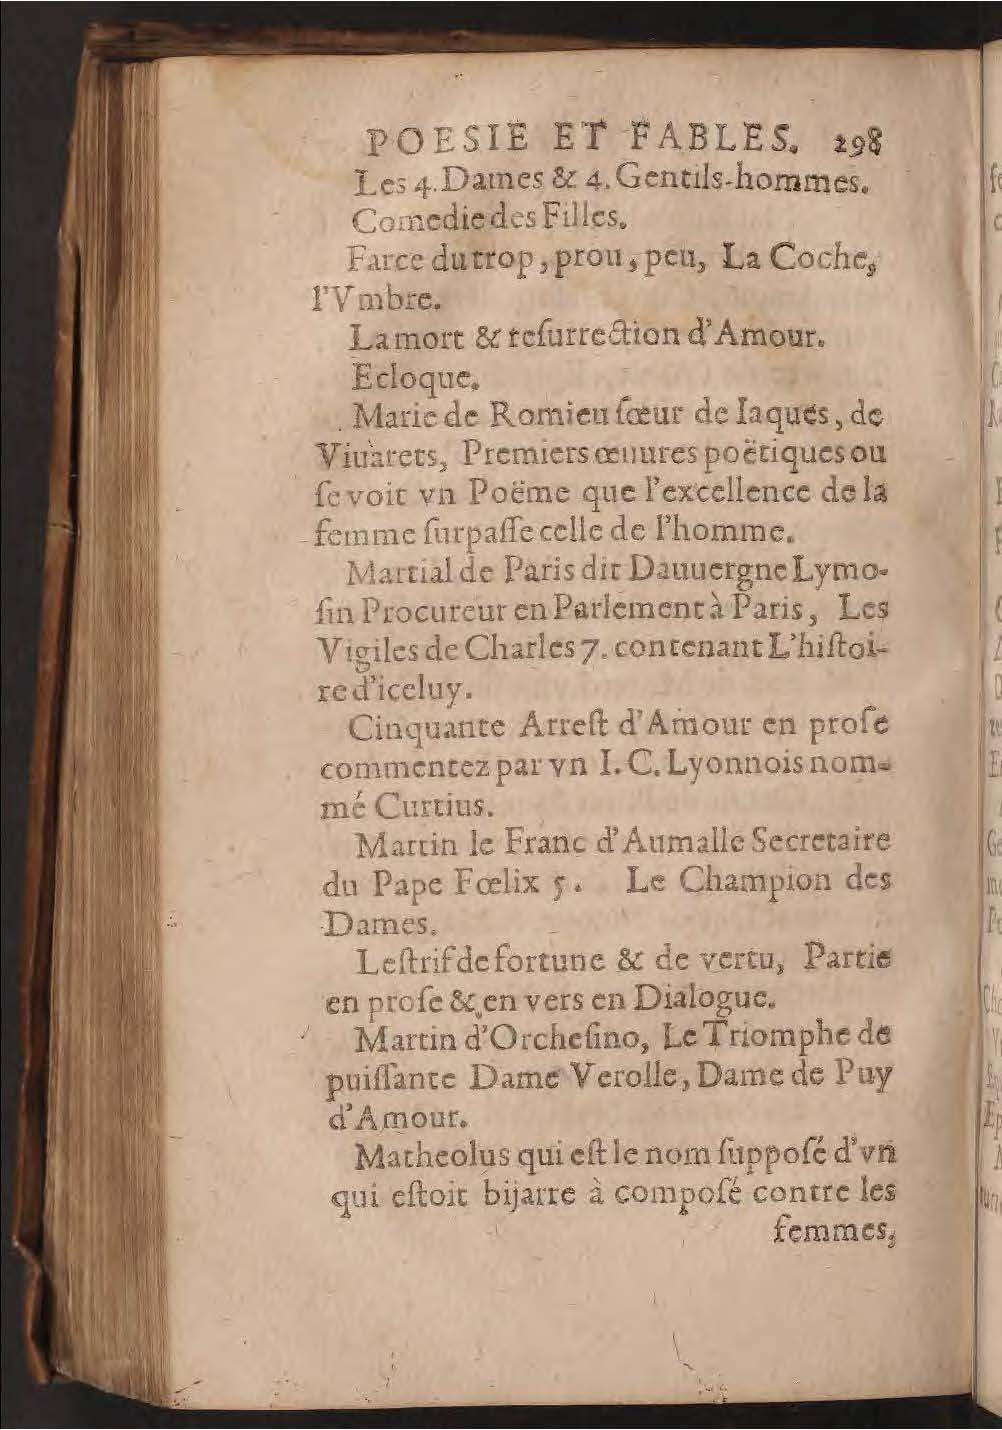 POESIE ET FABLES. 298
Les 4. Dames & 4. Gentils-hommes.
Comedie des Filles.
Farce du trop, prou, peu, La Coche,
l'Vmbre.
La mort & reſurrection d'Amour.
Ecloque.
Marie de Romieu ſœur de Iaques, de
Viuarets, Premiers œuures poëtiques ou
ſe voit vn Poëme que l'excellence de la
femme ſurpaſſe celle de l'homme.
Martial de Paris dit Dauuergne Lymo-
ſin Procureur en Parlement à Paris, Les
Vigiles de Charles 7. contenant L'hiſtoi-
re d'iceluy.
Cinquante Arreſt d'Amour en proſe
commentez par vn I. C. Lyonnois nom-
mé Curtius.
Martin le Franc d'Aumalle Secretaire
du Pape Fœlix 5. Le Champion des
Dames.
Leſtrif de fortune & de vertu, Partie
en proſe & en vers en Dialogue.
Martin d'Orcheſino, Le Triomphe de
puiſſante Dame Verolle, Dame de Puy
d'Amour.
Matheolus qui eſt le nom ſuppoſé d'vn
qui eſtoit bijarre à compoſé contre les
femmes,